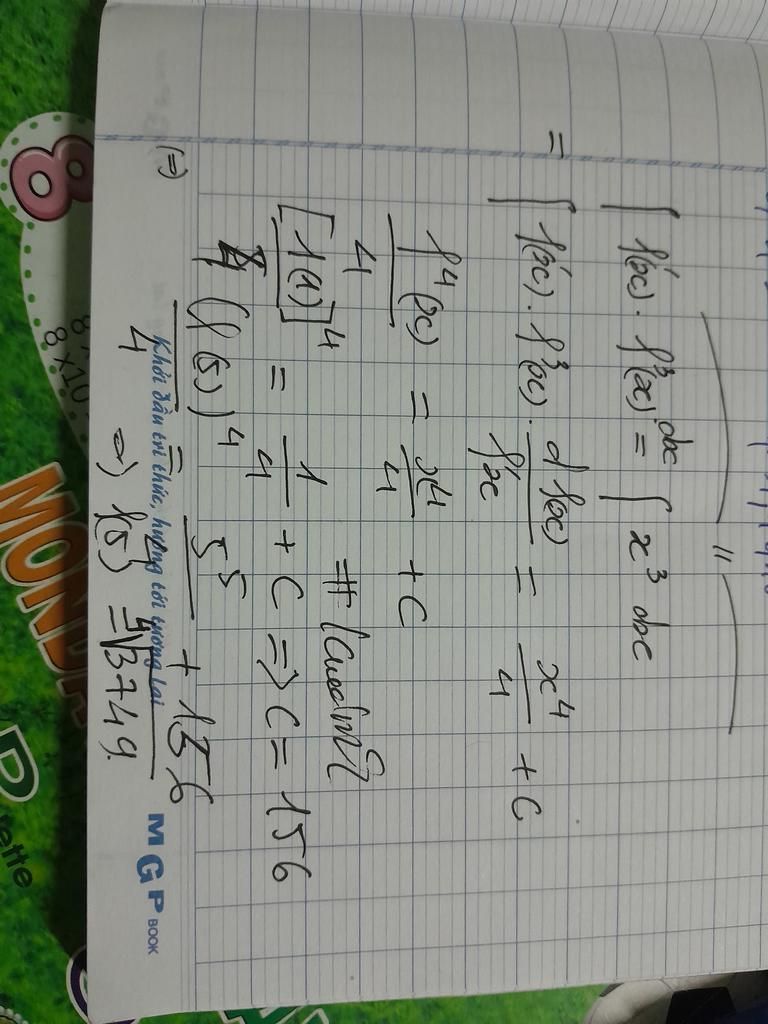 ∫ f'(x) . f³(x) dx = ∫ x³ dx
= ∫ f'(x) . f³(x) . d f(x) / f'x = x⁴/4 + C
f⁴(x)/4 = x⁴/4 + C
[f(1)]⁴/4 = 1/4 + C => C = 156
(=) (f(5))⁴/4 = 5⁵/4 + 156
=> f(5) = ⁴√3749.
Khởi đầu tri thức, hướng tới tương lai
MGP BOOK
8
8 x 10
MONDA